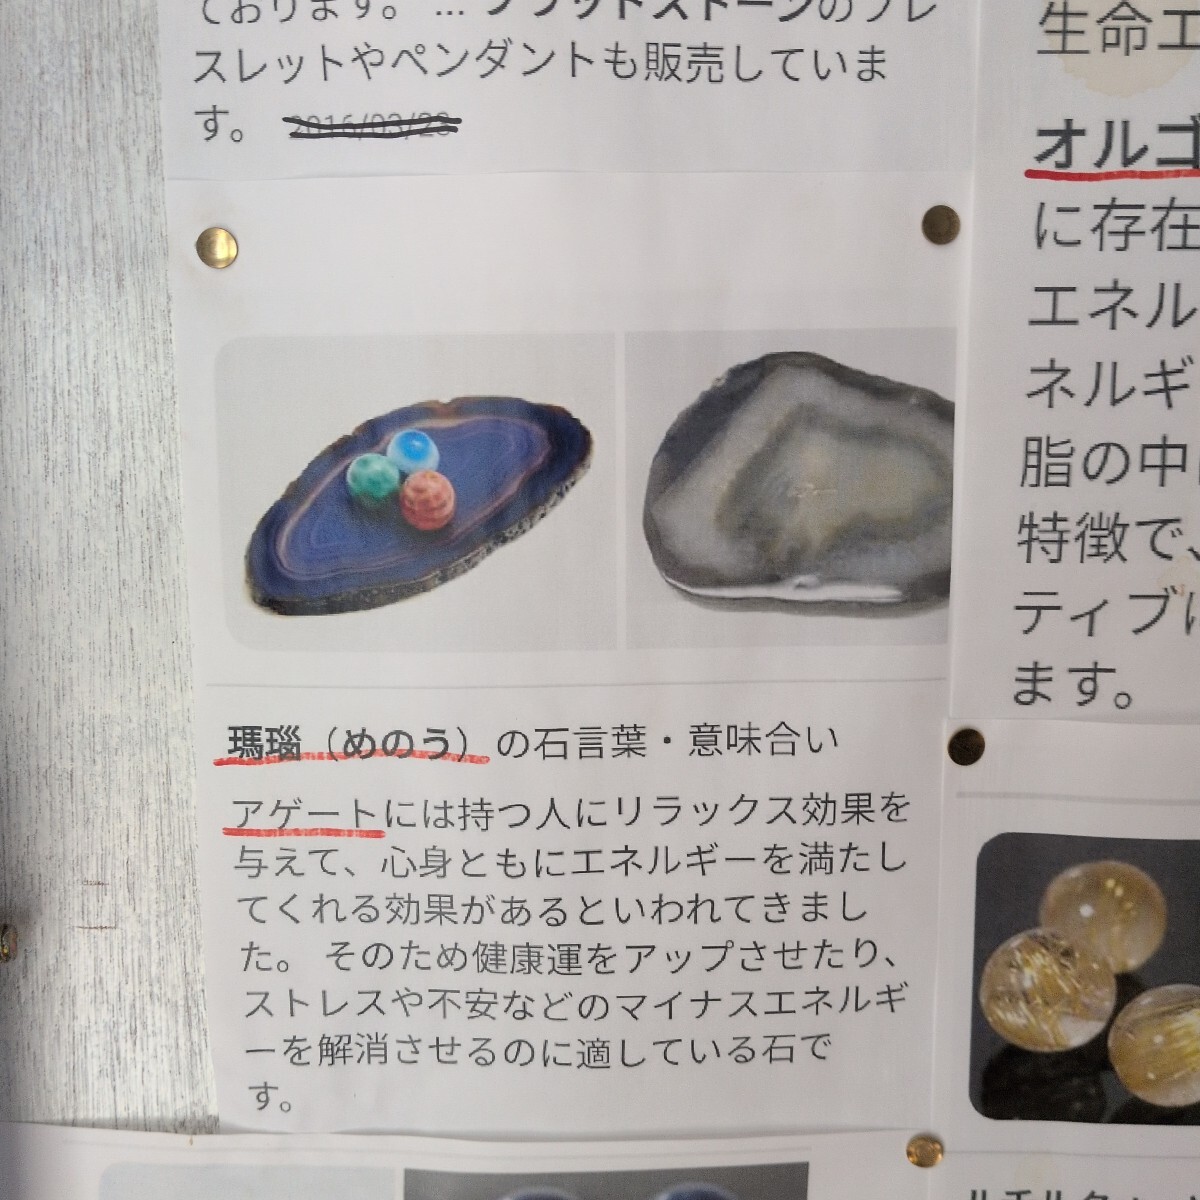 ております。 … ブラッドストーンのブレ
スレットやペンダントも販売していま
す。 2016/03/28
瑪瑙（めのう）の石言葉・意味合い
アゲートには持つ人にリラックス効果を
与えて、心身ともにエネルギーを満たし
てくれる効果があるといわれてきまし
た。 そのため健康運をアップさせたり、
ストレスや不安などのマイナスエネルギ
ーを解消させるのに適している石で
す。
生命エ
オルゴ
に存在
エネル
ネルギ
脂の中
特徴で、
ティブに
ます。